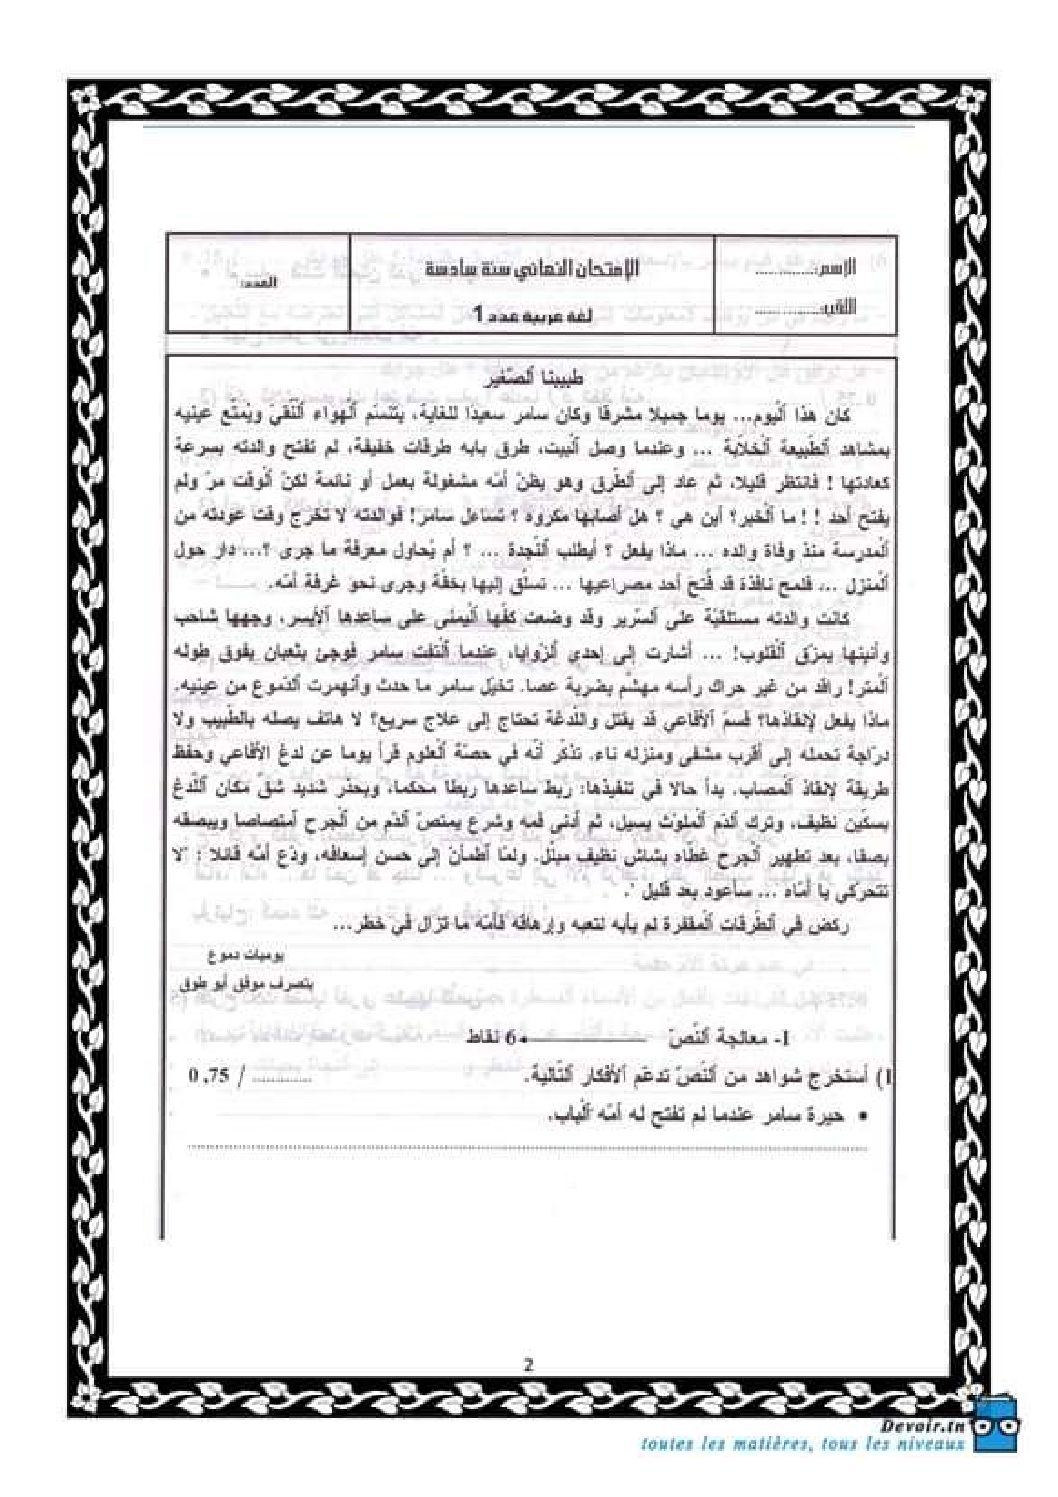 الإسم:..............
الإمتحان النهائي سنة سادسة
العدد:
اللقب:..............
لغة عربية عدد 1
طبيبنا ٱلصّغير
كان هذا ٱليوم... يوما جميلا مشرقا وكان سامر سعيدا للغاية، يتنسّم ٱلهواء ٱلنّقيّ ويمتّع عينيه
بمشاهد ٱلطّبيعة ٱلخلّابة ... وعندما وصل ٱلبيت، طرق بابه طرقات خفيفة، لم تفتح والدته بسرعة
كعادتها ! فانتظر قليلا، ثم عاد إلى ٱلطّرق وهو يظنّ أمّه مشغولة بعمل أو نائمة لكنّ ٱلوقت مرّ ولم
يفتح أحد ! ! ما ٱلخبر؟ أين هي ؟ هل أصابها مكروه ؟ تساءل سامر! فوالدته لا تخرج وقت عودته من
ٱلمدرسة منذ وفاة والده ... ماذا يفعل ؟ أيطلب ٱلنّجدة ... ؟ أم يُحاول معرفة ما جرى ؟... دار حول
ٱلمنزل ... فلمح نافذة قد فُتح أحد مصراعيها ... تسلّق إليها بخفّة وجرى نحو غرفة أمّه.
كانت والدته مستلقيّة على ٱلسّرير وقد وضعت كفّها ٱليمنى على ساعدها ٱلأيسر، وجهها شاحب
وأنينها يمزّق ٱلقلوب! ... أشارت إلى إحدى ٱلزّوايا، عندما ٱلتفت سامر فوجئ بثعبان يفوق طوله
ٱلمتر! راقد من غير حراك رأسه مهشّم بضربة عصا. تخيّل سامر ما حدث وٱنهمرت ٱلدّموع من عينيه.
ماذا يفعل لإنقاذها؟ فسمّ ٱلأفاعي قد يقتل وٱللّدغة تحتاج إلى علاج سريع؟ لا هاتف يصله بالطّبيب ولا
درّاجة تحمله إلى أقرب مشفى ومنزله ناء. تذكّر أنّه في حصّة ٱلعلوم قرأ يوما عن لدغ الأفاعي وحفظ
طريقة لإنقاذ ٱلمصاب. بدأ حالا في تنفيذها: ربط ساعدها ربطا محكما، وبحذر شديد شقّ مكان ٱللّدغ
بسكّين نظيف، وترك ٱلدّم ٱلملوّث يسيل، ثم أدنى فمه وشرع يمتصّ ٱلدّم من ٱلجرح ٱمتصاصا ويبصقه
بصقا، بعد تطهير ٱلجرح غطّاه بشاش نظيف مبتلّ. ولمّا ٱطمأنّ إلى حسن إسعافه، ودّع أمّه قائلا : "لا
تتحركي يا أمّاه ... سأعود بعد قليل ".
ركض في ٱلطّرقات ٱلمقفرة لم يأبه لتعبه وإرهاقه فأمّه ما تزال في خطر...
يوميات دموع
بتصرف موفق أبو طوق
I- معالجة ٱلنّصّ 6 نقاط
1) أستخرج شواهد من ٱلنّصّ تدعّم ٱلأفكار ٱلتّالية. ............. / 0,75
• حيرة سامر عندما لم تفتح له أمّه ٱلباب.
2
Devoir.tn
toutes les matières, tous les niveaux